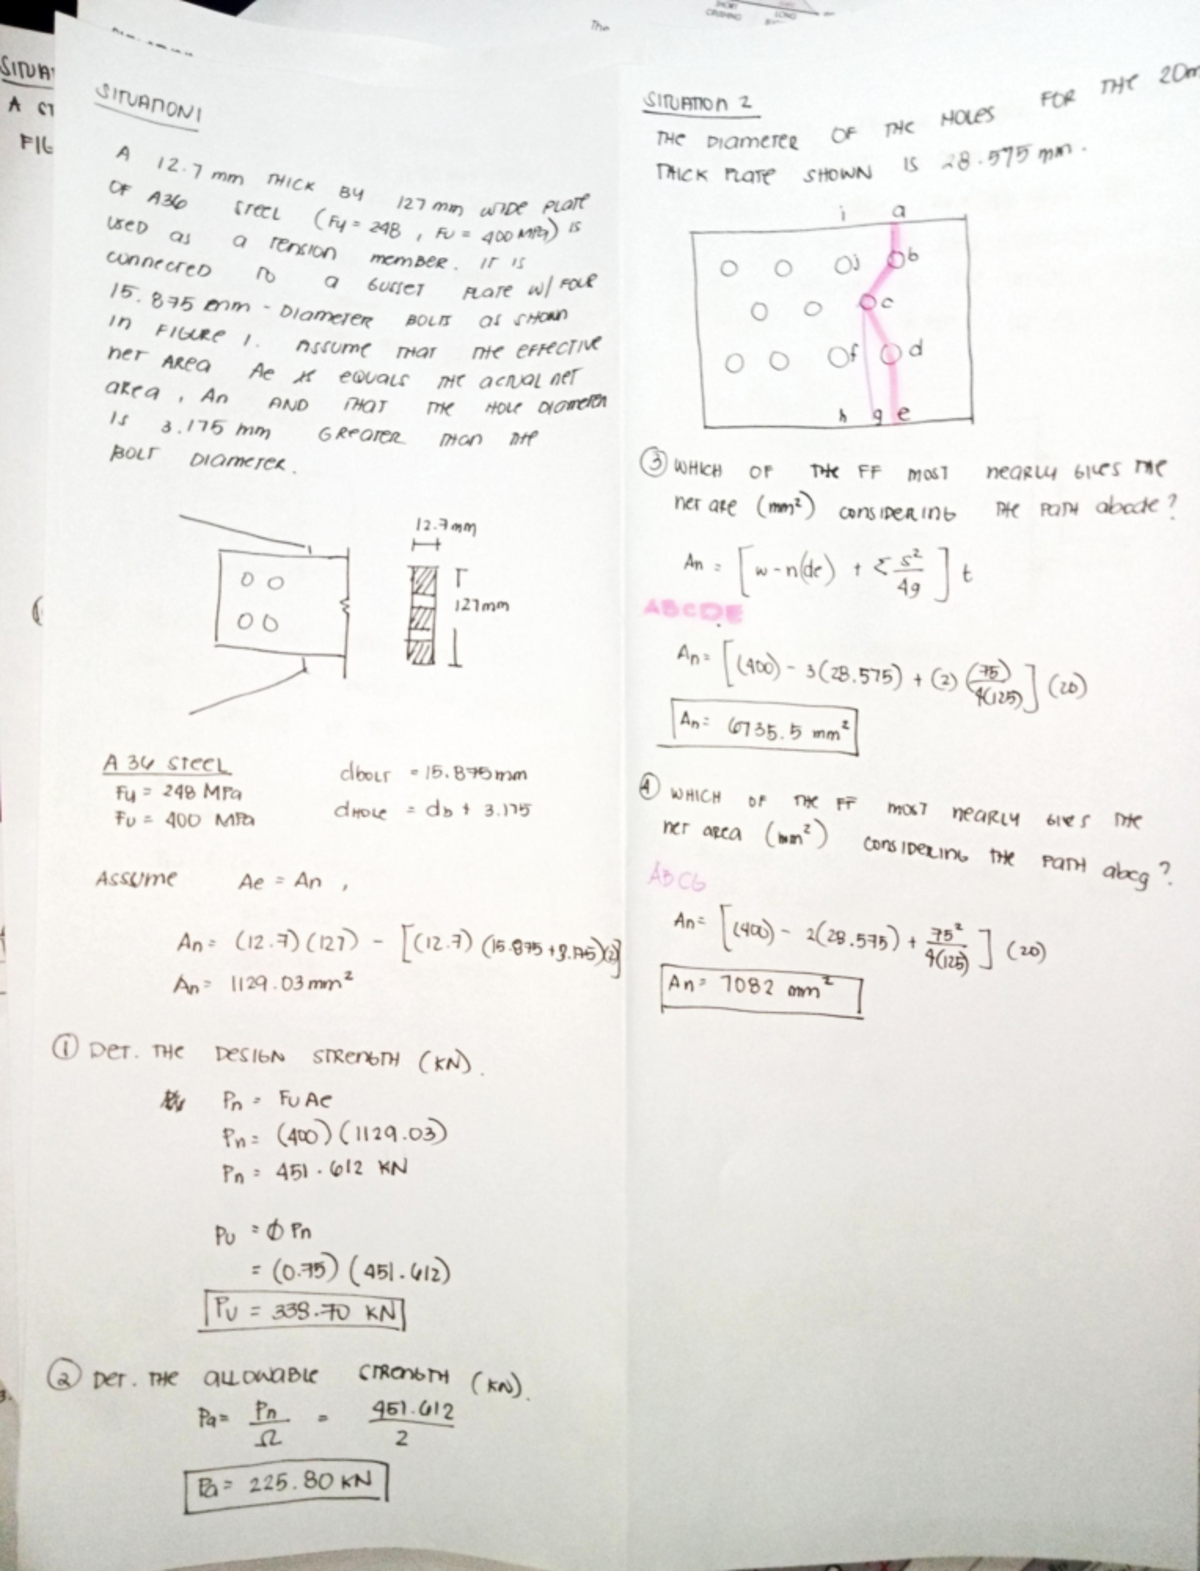 SHORT
CRUSHING
LONG
SITUA
A ST
FIG
SITUATION 1
A 12.7 mm THICK BY 127 mm WIDE PLATE
OF A36 STEEL (Fy = 248 , Fu = 400 MPa) IS
USED AS A TENSION MEMBER. IT IS
CONNECTED TO A GUSSET PLATE W/ FOUR
15.875 mm - DIAMETER BOLTS AS SHOWN
IN FIGURE 1. ASSUME THAT THE EFFECTIVE
NET AREA Ae EQUALS THE ACTUAL NET
AREA, An AND THAT THE HOLE DIAMETER
IS 3.175 mm GREATER THAN THE
BOLT DIAMETER.
12.7mm
127mm
A 36 STEEL
Fy = 248 MPa
Fu = 400 MPa
dBOLT = 15.875mm
dHOLE = db + 3.175
ASSUME Ae = An ,
An = (12.7)(127) - [(12.7)(15.875+3.175)(2)]
An = 1129.03 mm²
① DET. THE DESIGN STRENGTH (KN).
Pn = Fu Ae
Pn = (400)(1129.03)
Pn = 451.612 KN
Pu = φ Pn
= (0.75)(451.612)
Pu = 338.70 KN
② DET. THE ALLOWABLE STRENGTH (KN).
Pa = Pn/Ω = 451.612/2
Pa = 225.80 KN
SITUATION 2
THE DIAMETER OF THE HOLES FOR THE 20m
THICK PLATE SHOWN IS 28.575 mm.
i a
j b
c
f d
h g e
③ WHICH OF THE FF MOST NEARLY GIVES THE
NET ARE (mm²) CONSIDERING THE PATH abcde?
An = [w - n(de) + Σ s²/4g] t
ABCDE
An = [(400) - 3(28.575) + (2)(75/4(125))](20)
An = 6735.5 mm²
④ WHICH OF THE FF MOST NEARLY GIVES THE
NET AREA (mm²) CONSIDERING THE PATH abcg?
ABCG
An = [(400) - 2(28.575) + 75²/4(125)](20)
An = 7082 mm²